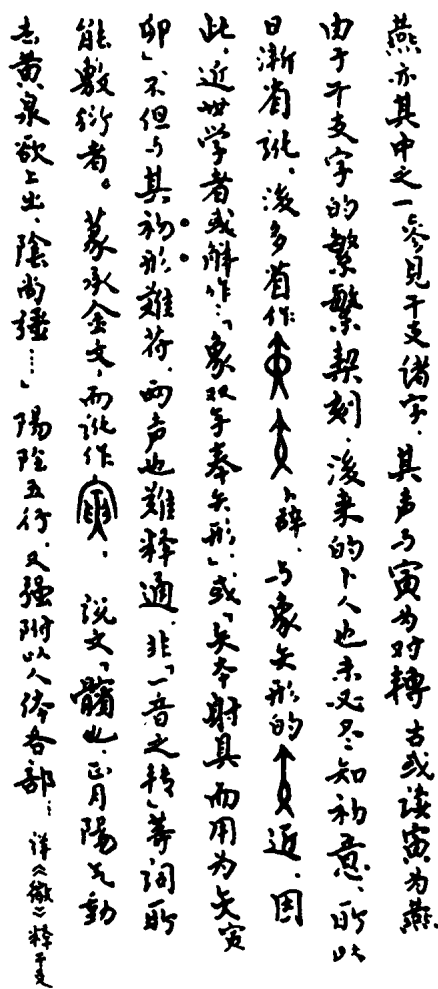 燕亦其中之一参見干支諸字．其声与寅为对轉 古或读寅为燕．
由于干支字的繁繁契刻．後来的卜人也未必尽知初意、所以
日漸省訛、後多省作 卜辭．与象矢形的 近．因
此．近世学者或解作：「象双手奉矢形．」或「矢本射具而用为矢寅
卯」不但与其初形難符．两声也難释通．非「一音之转」等词所
能敷衍者。篆承金文．而訛作 ． 説文「髕也．正月陽气動
去黄泉欲上出．陰尚强……」陽陰五行．又强附以人体各部： 详《徵》释干支